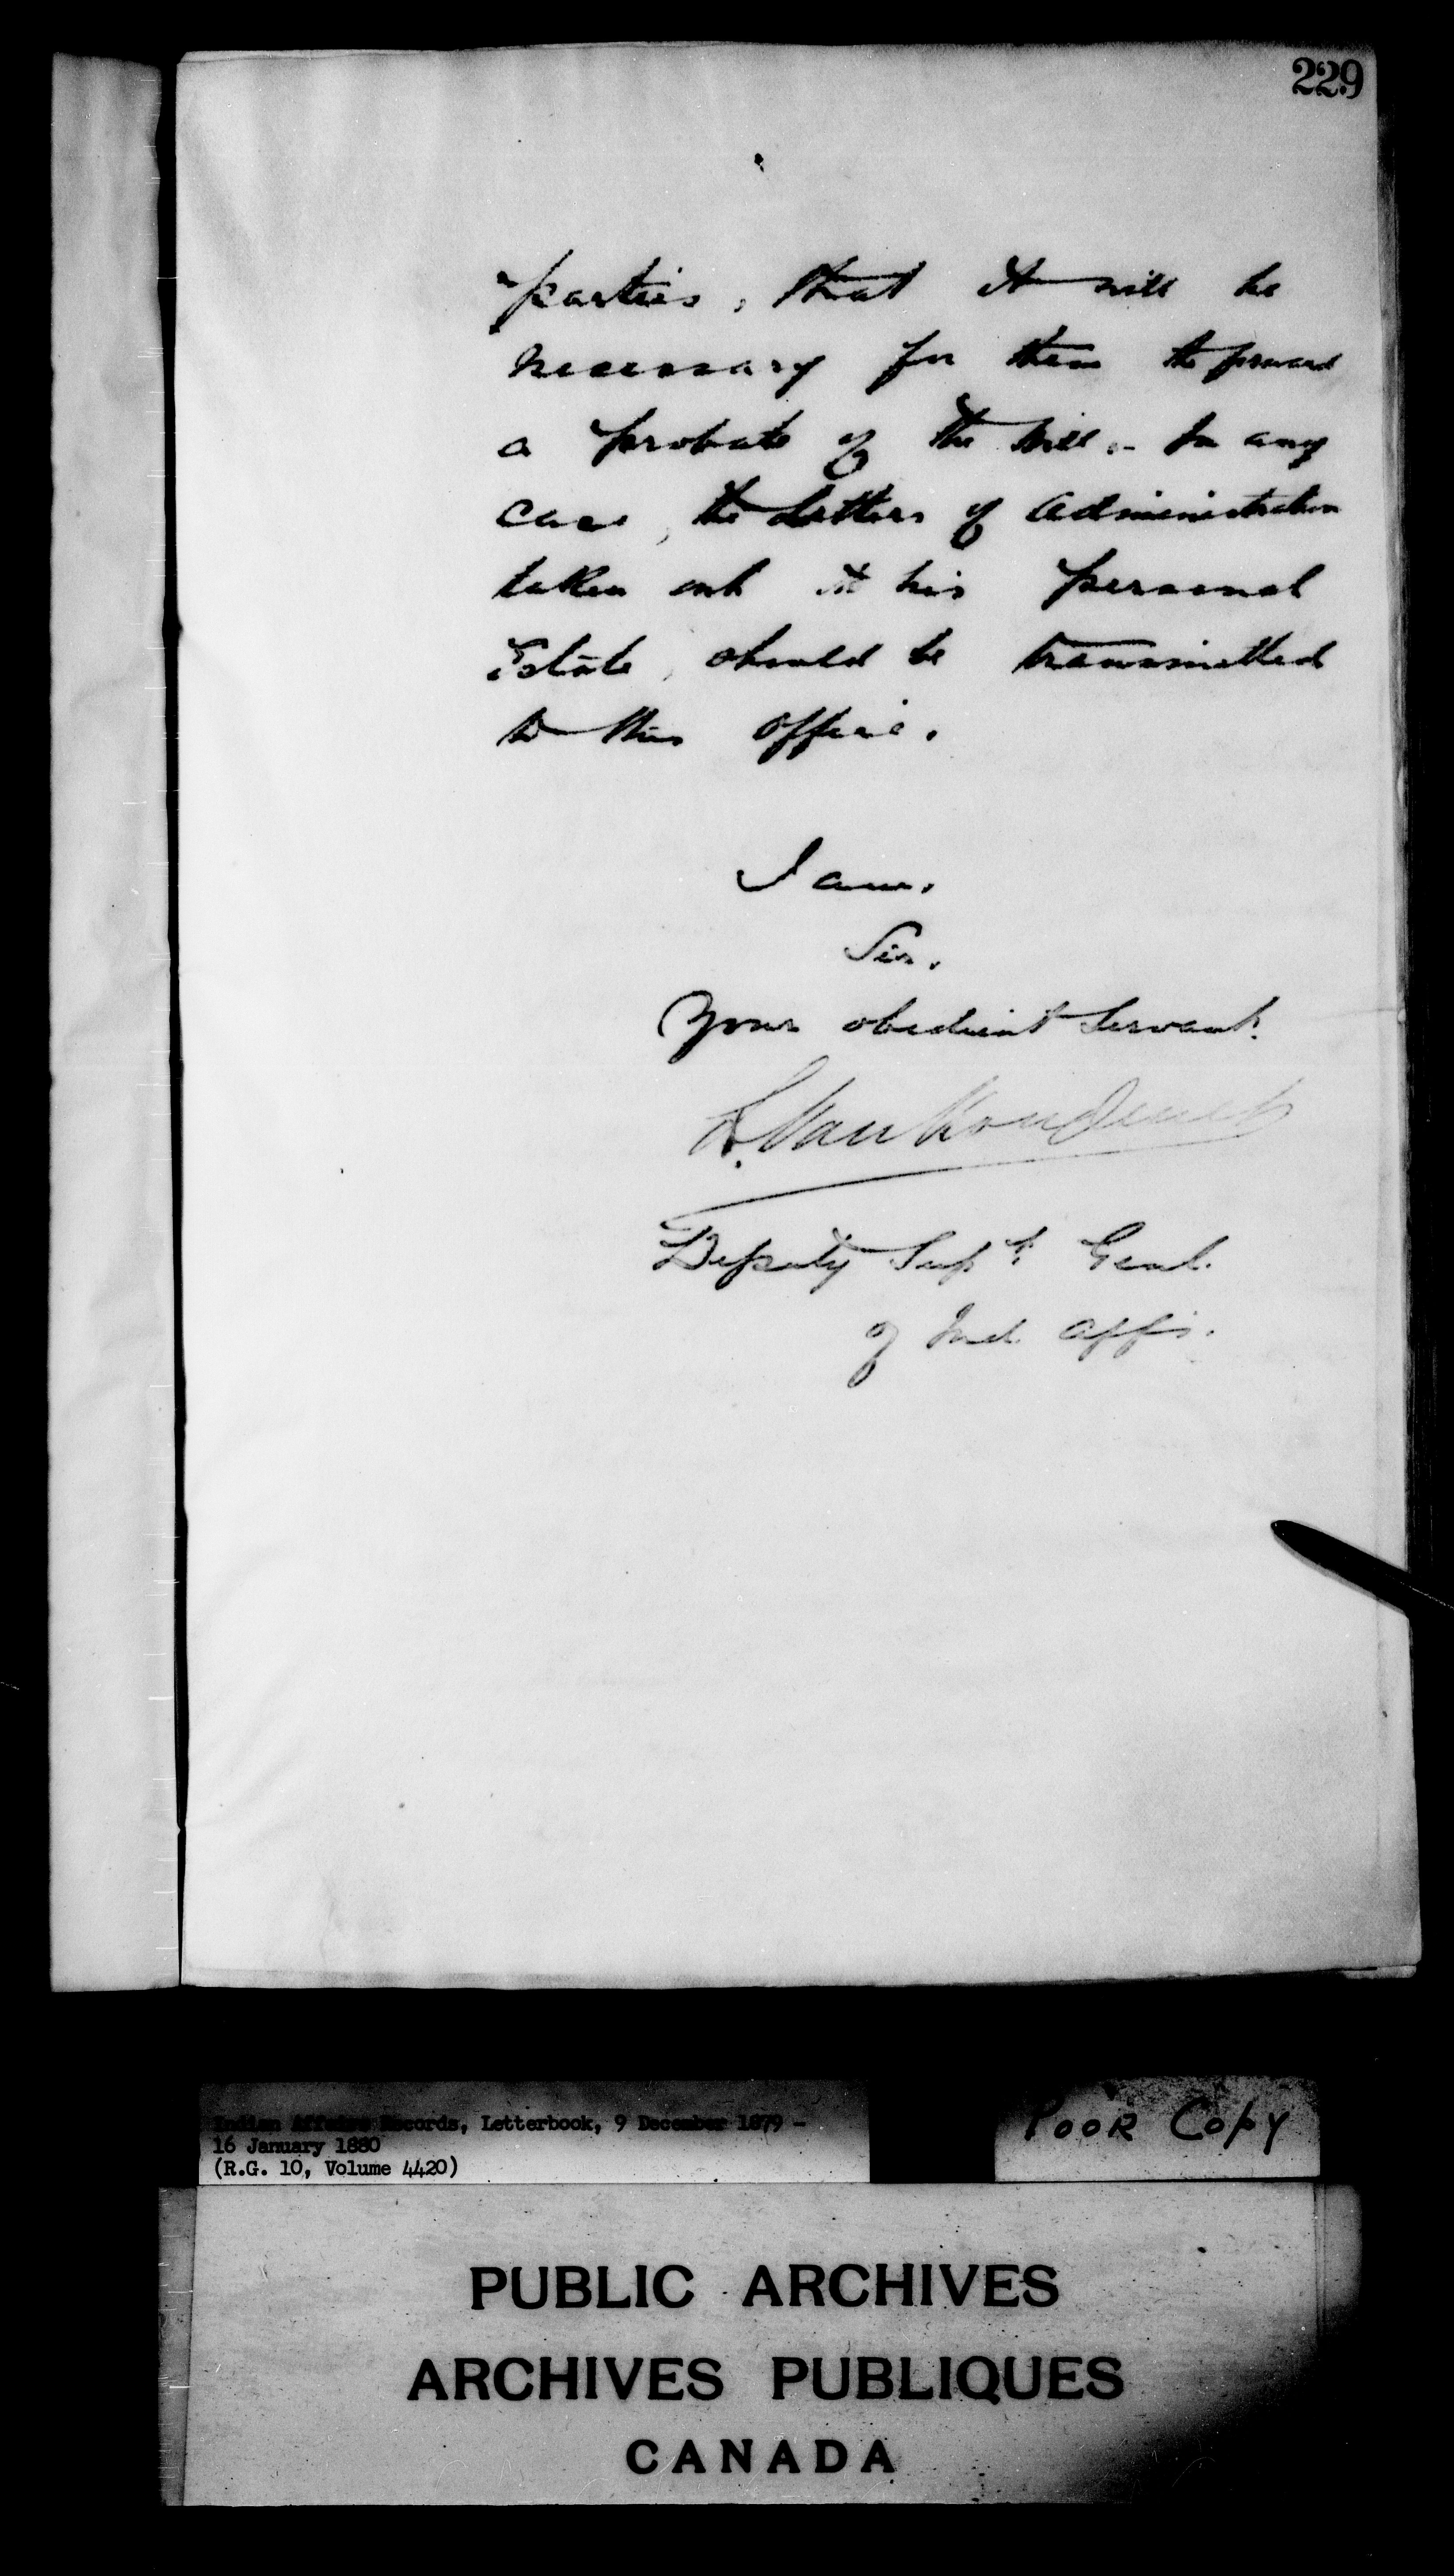 229
parties, that it will be
necessary for them to forward
a probate of the Will.- In any
case, the Letters of Administration
taken out to his personal
Estate, should be transmitted
to this office.
I am,
Sir,
Your obedient Servant.
L. VanKoughnet
Deputy Supt. Genl.
of Ind. Affs.
Indian Affairs Records, Letterbook, 9 December 1879 -
16 January 1880
(R.G. 10, Volume 4420)
POOR COPY
PUBLIC ARCHIVES
ARCHIVES PUBLIQUES
CANADA